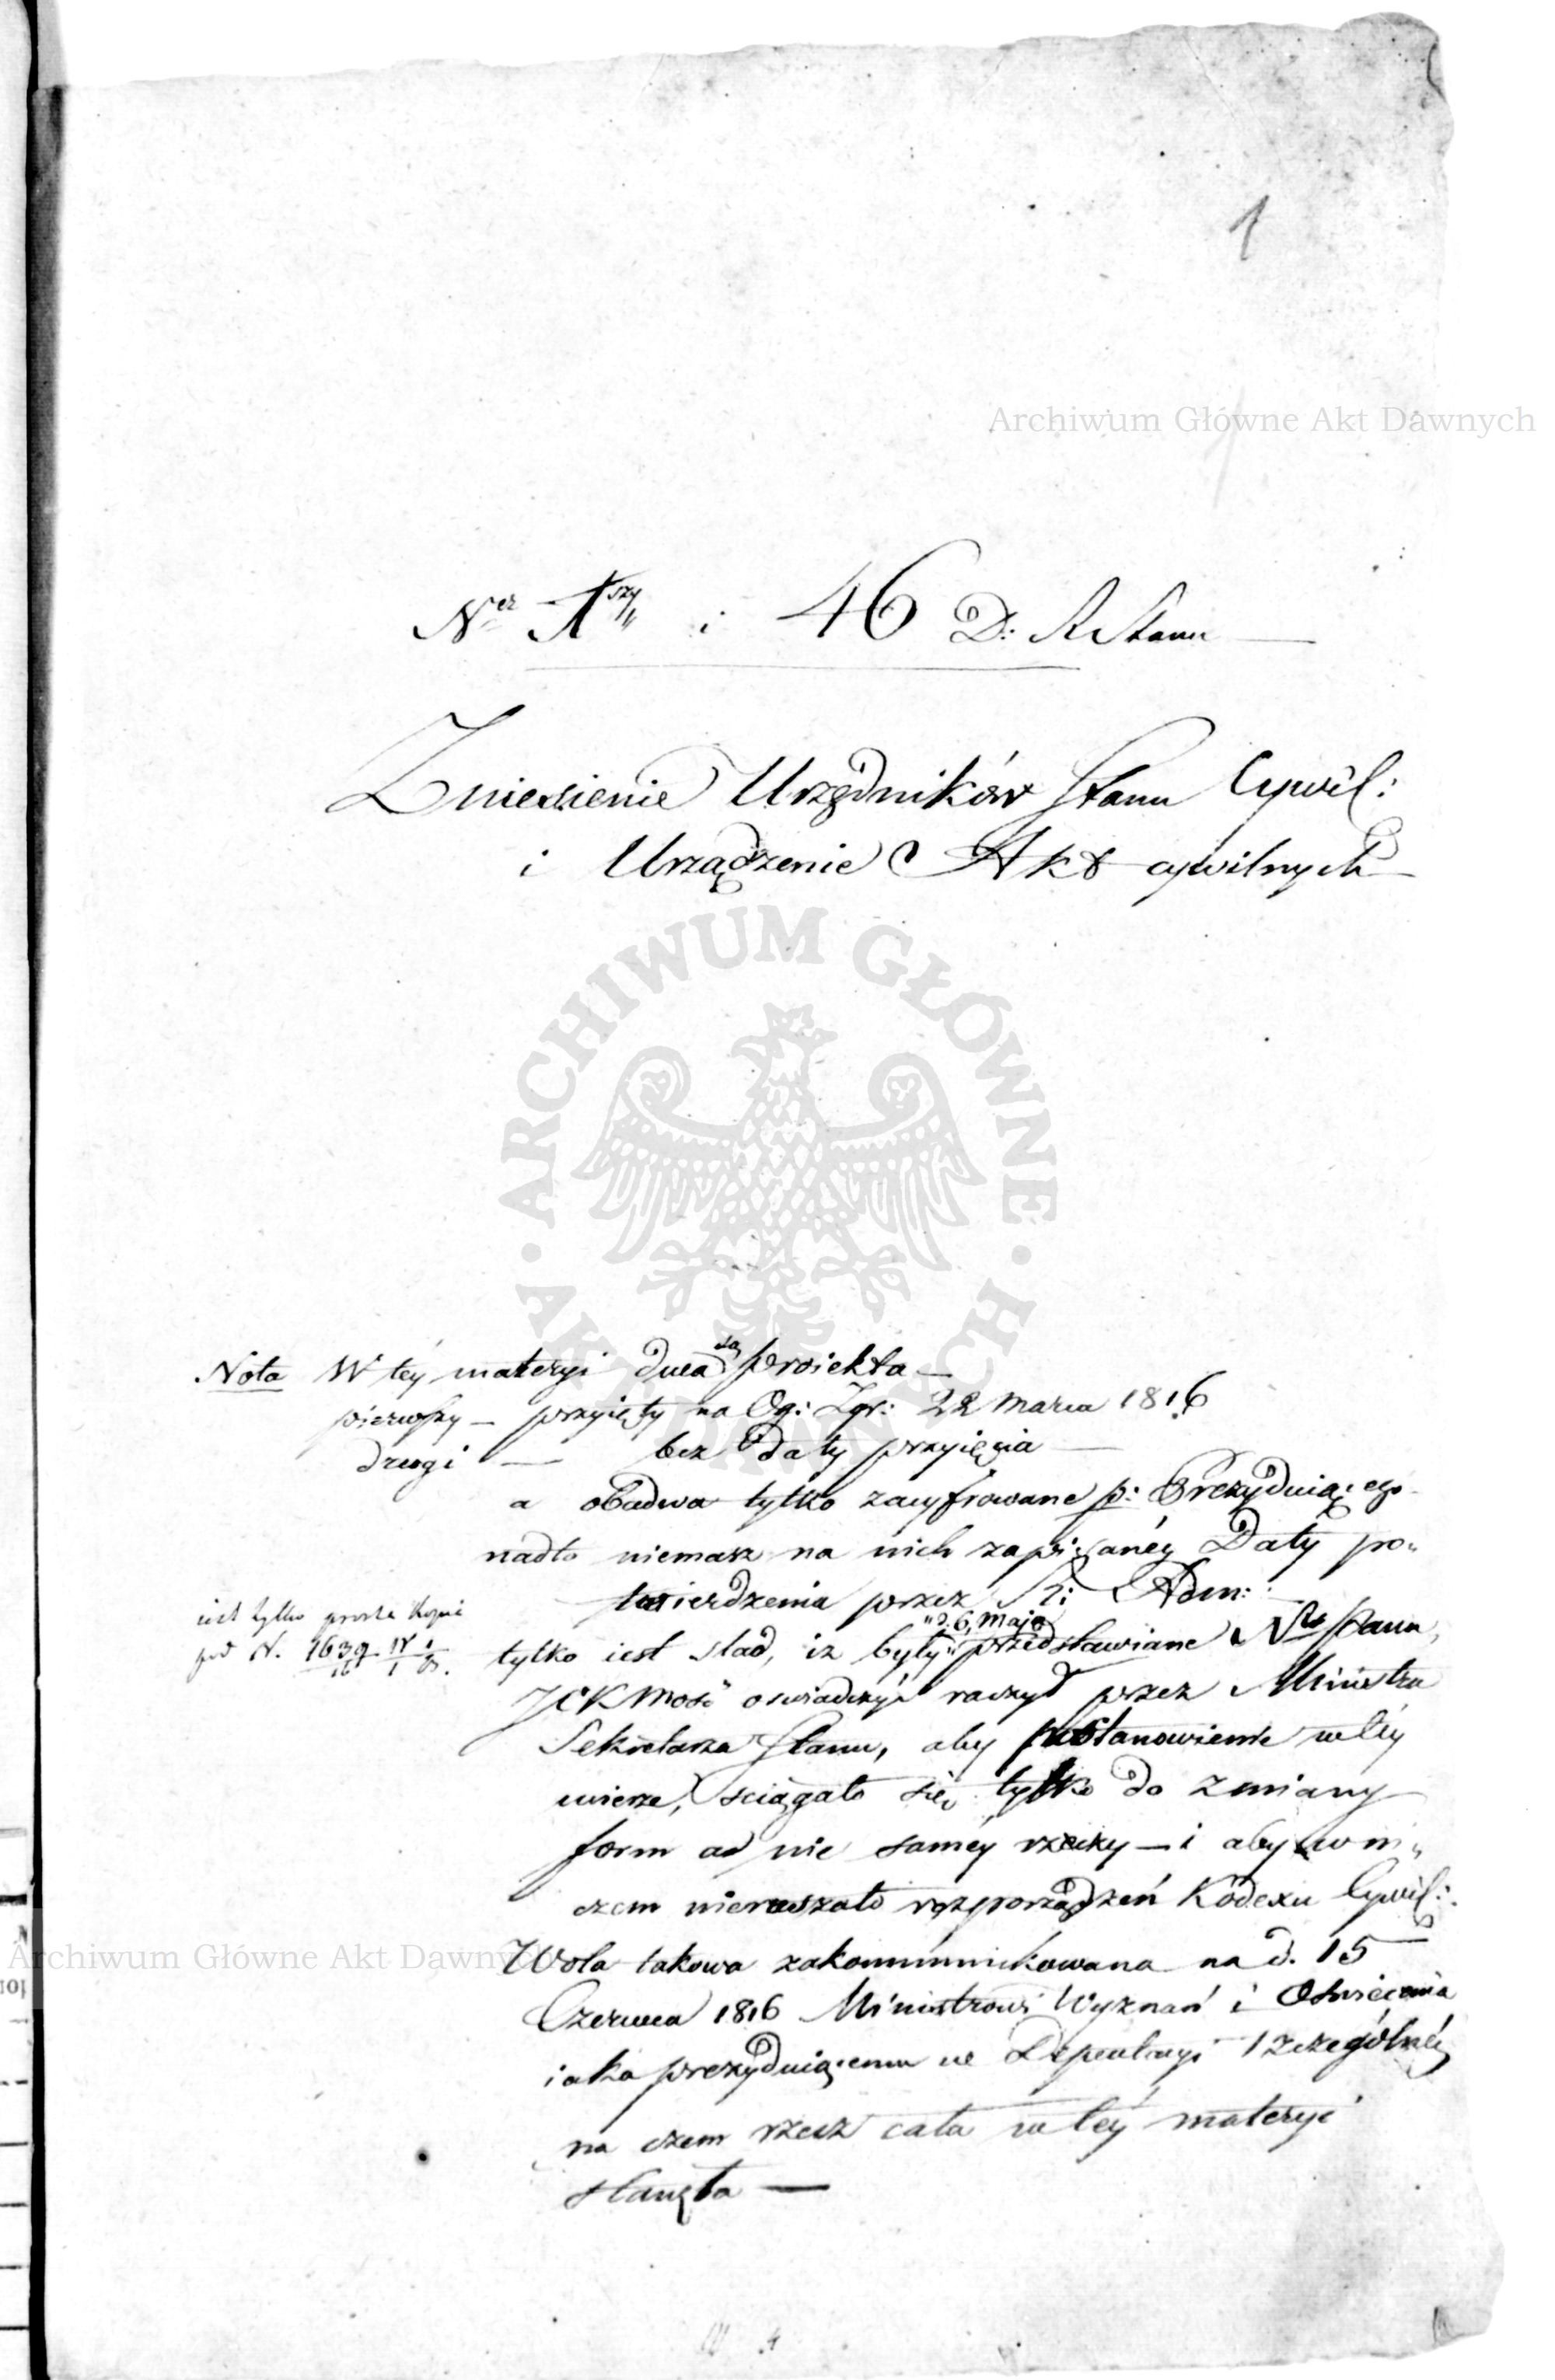 1
Archiwum Główne Akt Dawnych
Ner 1szy i 46 D: R Stanu
Zniesienie Urzędników Stanu Cywil:
i Urządzenie Akt cywilnych
ARCHIWUM GŁÓWNE AKT DAWNYCH
Nota W téy materyi dwa są proiekta —
pierwszy — przyięty na Og: Zgr: 22 Marca 1816
drugi — bez daty przyięcia —
a obadwa tylko zacyfrowane p: Prezyduiącego
nadto niemasz na nich zapisanéy Daty po„
twierdzenia przez R: Adm:
iest tylko prosta kopia
pod N. 1639
"d. 6, Maja
tylko iest slad, iz były przedstawiane Nu Panu,
JCKMość oswiadczyć raczył przez Ministra
Sekretarza Stanu, aby postanowienie w téy
mierze, sciągało się tylko do zmiany
form a nie saméy rzeczy — i aby w ni„
czem nieruszało rozporządzeń Kodexu Cywil:
Wola takowa zakommunikowana na d. 15
Czerwca 1816 Ministrowi Wyznań i Oświecenia
iako prezyduiącemu w Deputacyi Szczególnéy
na czem rzecz cała w téy materyi
stanęła —
Archiwum Główne Akt Dawnych